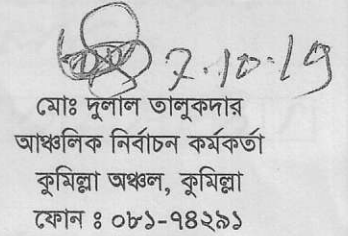 7.10.19
মোঃ দুলাল তালুকদার
আঞ্চলিক নির্বাচন কর্মকর্তা
কুমিল্লা অঞ্চল, কুমিল্লা
ফোন ঃ ০৮১-৭৪২৯১